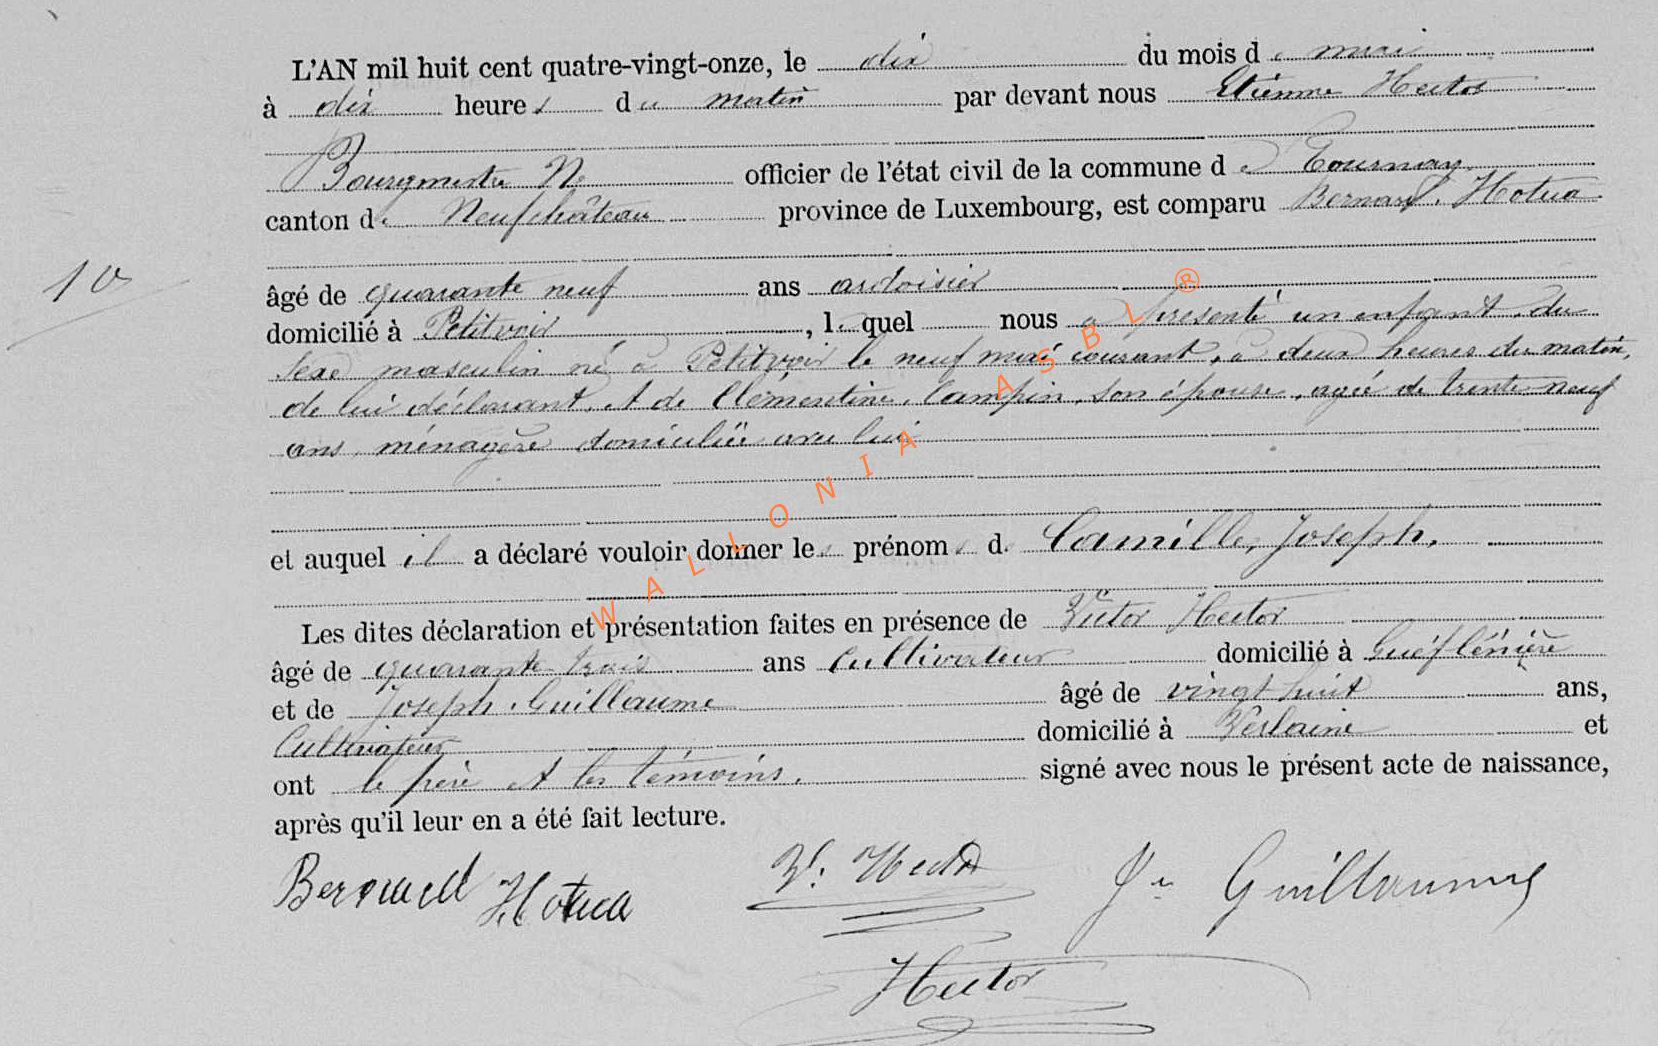 L'AN mil huit cent quatre-vingt-onze, le dix du mois de mai
à dix heures du matin par devant nous Etienne Hector
Bourgmestre officier de l'état civil de la commune de Tournay
canton de Neufchâteau province de Luxembourg, est comparu Bernard Hotua
10
âgé de quarante neuf ans ardoisier
domicilié à Petitvoir, lequel nous a présenté un enfant du
sexe masculin né à Petitvoir le neuf mai courant, à deux heures du matin,
de lui déclarant, et de Clémentine Campin, son épouse, agée de trente neuf
ans, ménagère domiciliée avec lui
et auquel il a déclaré vouloir donner les prénoms de Camille, Joseph.
Les dites déclaration et présentation faites en présence de Victor Hector
âgé de quarante trois ans cultivateur domicilié à
et de Joseph Guillaume âgé de vingt huit ans,
Cultivateur domicilié à Verlaine et
ont le père et les témoins. signé avec nous le présent acte de naissance,
après qu'il leur en a été fait lecture.
Bernard Hotua V. Hector Guillaume
Hector
WALLONIA ASBL ®